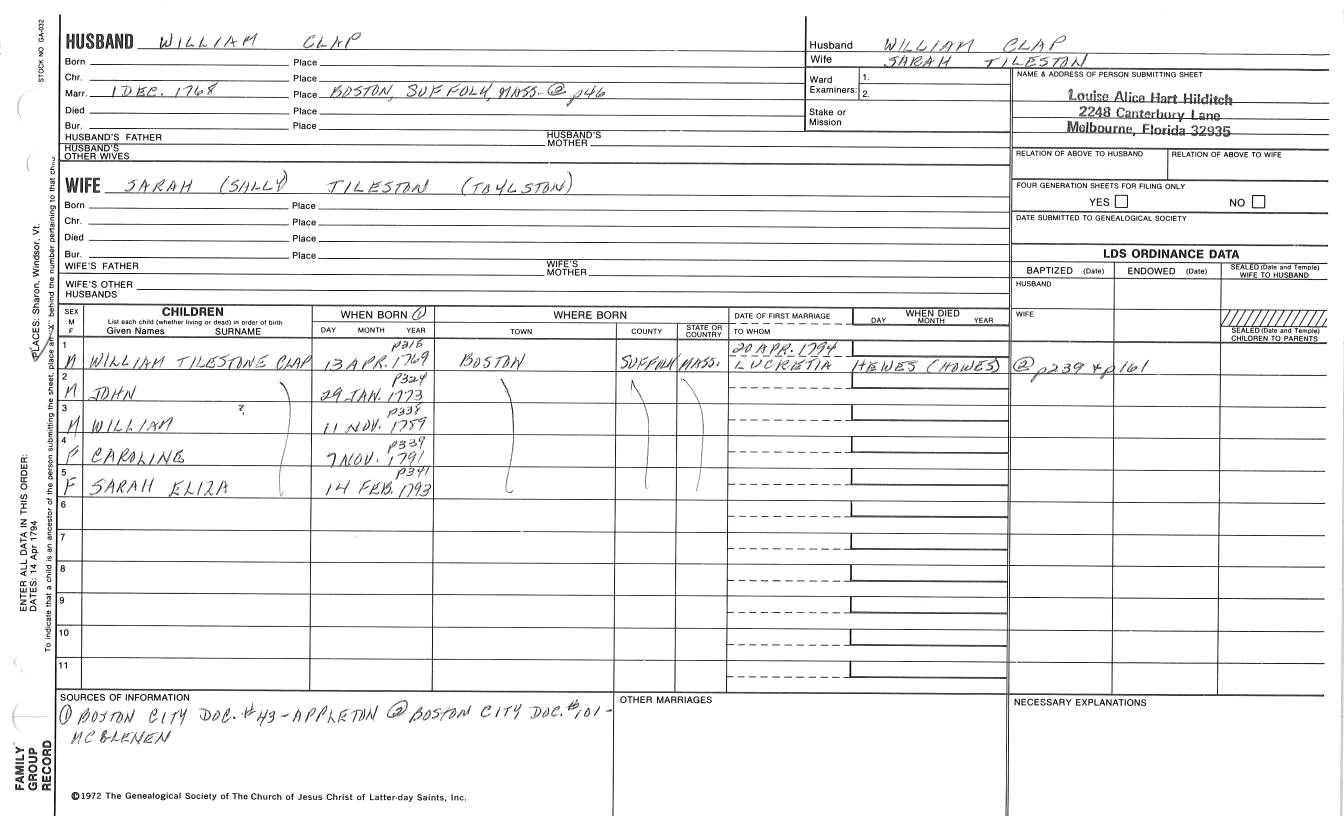 STOCK NO GA-032
HUSBAND WILLIAM CLAP
Born Place
Chr. Place
Marr. 1 DEC. 1768 Place BOSTON, SUFFOLK, MASS. ② p46
Died Place
Bur. Place
HUSBAND'S FATHER HUSBAND'S MOTHER
HUSBAND'S OTHER WIVES
Husband WILLIAM CLAP
Wife SARAH TILESTON
Ward Examiners: 1.
2.
Stake or Mission
NAME & ADDRESS OF PERSON SUBMITTING SHEET
Louise Alice Hart Hilditch
2248 Canterbury Lane
Melbourne, Florida 32935
RELATION OF ABOVE TO HUSBAND RELATION OF ABOVE TO WIFE
FOUR GENERATION SHEETS FOR FILING ONLY
YES NO
DATE SUBMITTED TO GENEALOGICAL SOCIETY
WIFE SARAH (SALLY) TILESTON (TOYLSTON)
Born Place
Chr. Place
Died Place
Bur. Place
WIFE'S FATHER WIFE'S MOTHER
WIFE'S OTHER HUSBANDS
LDS ORDINANCE DATA
BAPTIZED (Date) ENDOWED (Date) SEALED (Date and Temple) WIFE TO HUSBAND
HUSBAND
WIFE
SEALED (Date and Temple) CHILDREN TO PARENTS
SEX M F
CHILDREN
List each child (whether living or dead) in order of birth
Given Names SURNAME
WHEN BORN ①
DAY MONTH YEAR
WHERE BORN
TOWN COUNTY STATE OR COUNTRY
DATE OF FIRST MARRIAGE
TO WHOM
WHEN DIED
DAY MONTH YEAR
1 p315 20 APR. 1794
M WILLIAM TILESTONE CLAP 13 APR. 1769 BOSTON SUFFOLK MASS. LUCRETIA HEWES (HOWES) ② p239 & p161
2 p324
M JOHN 29 JAN. 1773
3 ? p338
M WILLIAM 11 NOV. 1789
4 p339
F CAROLINE 7 NOV. 1791
5 p341
F SARAH ELIZA 14 FEB. 1793
6
7
8
9
10
11
SOURCES OF INFORMATION
① BOSTON CITY DOC. #43 - APPLETON ② BOSTON CITY DOC. #101 -
MCGLENEN
OTHER MARRIAGES
NECESSARY EXPLANATIONS
©1972 The Genealogical Society of The Church of Jesus Christ of Latter-day Saints, Inc.
FAMILY
GROUP
RECORD
ENTER ALL DATA IN THIS ORDER:
DATES: 14 Apr 1794
PLACES: Sharon, Windsor, Vt.
To indicate that a child is an ancestor of the person submitting the sheet, place an "X" behind the number pertaining to that child